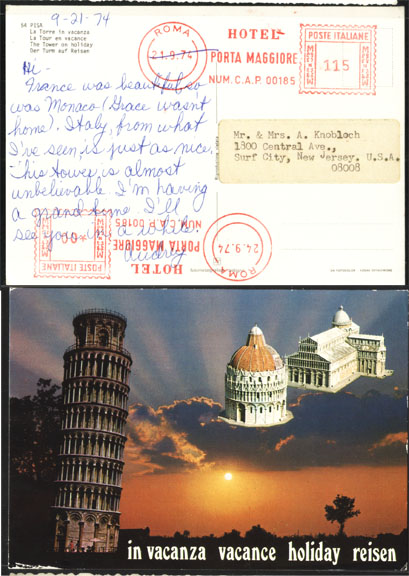 9-21-74
54 PISA
La Torre in vacanza
La Tour en vacance
The Tower on holiday
Der Turm auf Reisen
Hi -
France was beautiful, so
was Monaco (Grace wasn't
home). Italy, from what
I've seen, is just as nice.
This tower is almost
unbelievable. I'm having
a grand time. I'll
see you in a while.
Audrey
ROMA
21.9.74
HOTEL
PORTA MAGGIORE
NUM.C.A.P. 00185
POSTE ITALIANE
115
Mr. & Mrs. A. Knobloch
1800 Central Ave.,
Surf City, New Jersey. U.S.A.
08008
ROMA
24.9.74
HOTEL
PORTA MAGGIORE
NUM.C.A.P. 00185
POSTE ITALIANE
in vacanza vacance holiday reisen